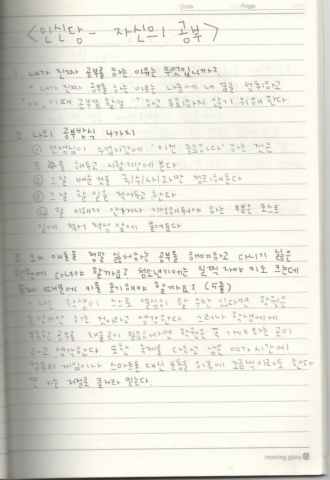 Date. Page.
<인신당 - 자신의 공부>
1. 내가 진짜 공부를 하는 이유는 무엇입니까?
- 내가 진짜 공부를 하는 이유는 나중에 내 꿈을 성취하고
"아, 이때 공부좀 할걸.." 하고 후회하지 않기 위해 한다
2. 나의 공부방식 4가지
① 선생님이 수업시간에 '이건 중요하다' 하는 것은
꼭 해두고 시험기간에 본다
② 그날 배운 것을 국/수/사/과만 정리해둔다
③ 그날 할 일을 적어두고 한다
④ 잘 이해가 안되거나 기억해둬야 하는 부분은 포스트
잇에 적어 책상 앞에 붙여둔다
3. 왜 애들은 정말 싫어하는 공부를 해야하고 다니기 싫은
학원에 다녀야 할까요? 청소년기에는 일찍 자야 키도 크는데
숙제 때문에 키를 포기해야 할까요? (서술)
- 나는 학생이 스스로 열심히 할 수만 있다면 학원은
하는 것이라고 생각한다 그러나 학생에게
부족한 공부를 채울곳이 필요하다면 학원은 꼭 가야하는 곳이
라고 생각한다 또한 숙제를 다하고 남은 여가시간에
컴퓨터 게임이나 스마트폰 대신 운동을 하루에 조금씩이라도 한다
면 키는 저절로 클거라 믿는다.
morning glory